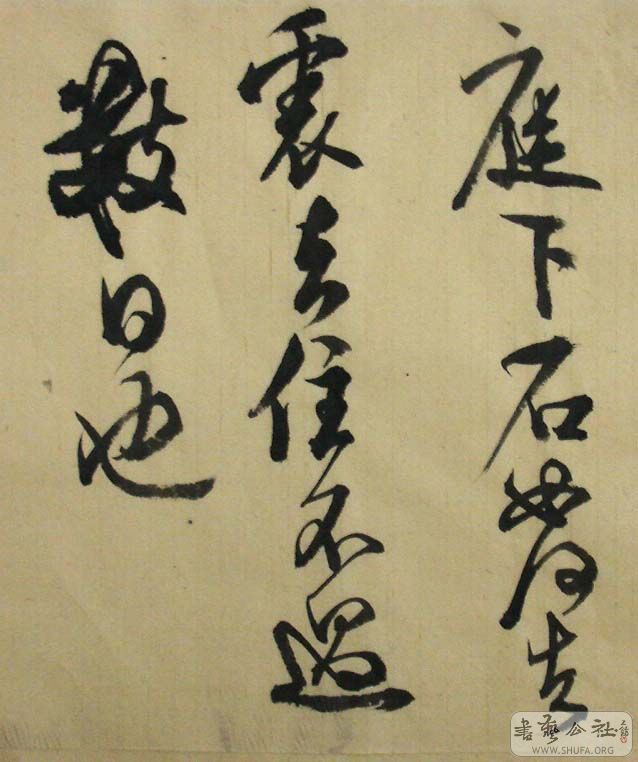 庭下石如何
震去住不過
數日也
書藝公社
WWW.SHUFA.ORG